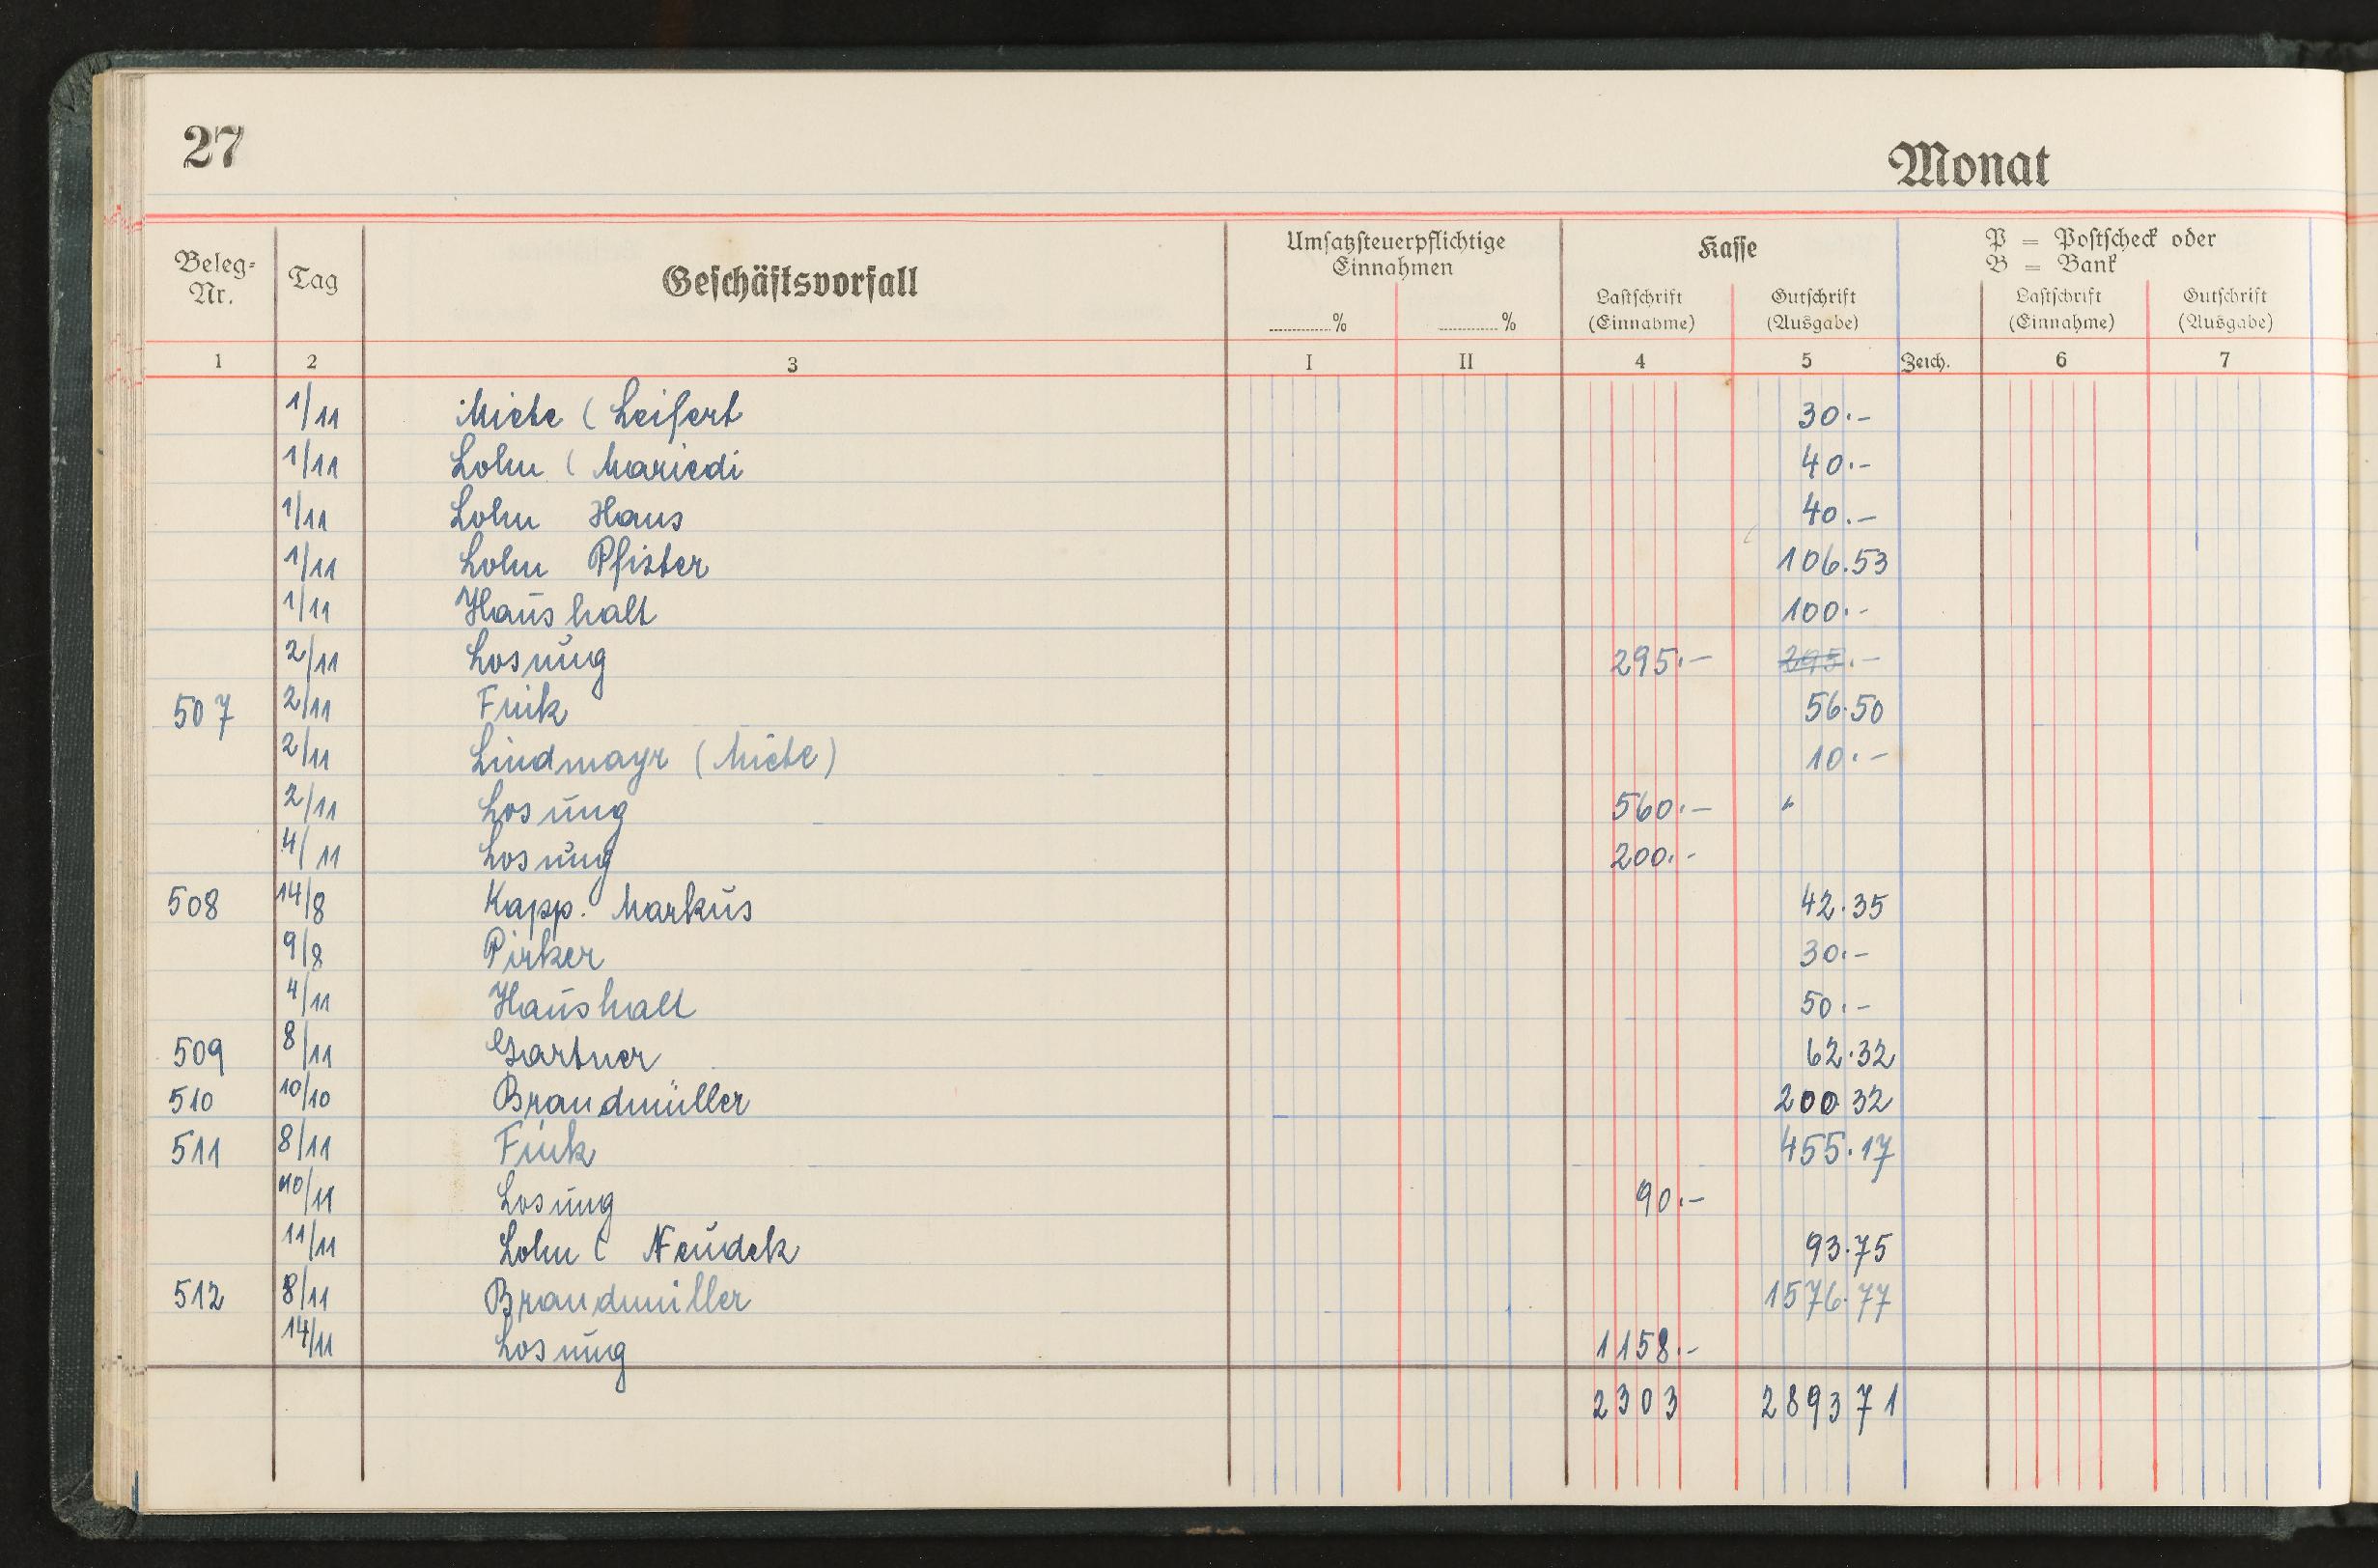 27
Monat
Beleg-Nr. Tag Geschäftsvorfall Umsatzsteuerpflichtige Einnahmen Kasse P = Postscheck oder B = Bank
..........% ..........% Lastschrift (Einnahme) Gutschrift (Ausgabe) Lastschrift (Einnahme) Gutschrift (Ausgabe)
1 2 3 I II 4 5 Zeich. 6 7
1/11 Miete ( Leifert 30.-
1/11 Lohn ( Mariedi 40.-
1/11 Lohn Hans 40.-
1/11 Lohn Pfister 106.53
1/11 Haushalt 100.-
2/11 Losung 295.- 295.-
507 2/11 Fink 56.50
2/11 Lindmayr (Miete) 10.-
2/11 Losung 560.-
4/11 Losung 200.-
508 14/8 Kapp. Markus 42.35
9/8 Pirker 30.-
4/11 Haushalt 50.-
509 8/11 Gartner 62.32
510 10/10 Brandmüller 200 32
511 8/11 Fink 455.17
10/11 Losung 90.-
11/11 Lohn ( Neudek 93.75
512 8/11 Brandmüller 1576.77
14/11 Losung 1158.-
2303 2893 71